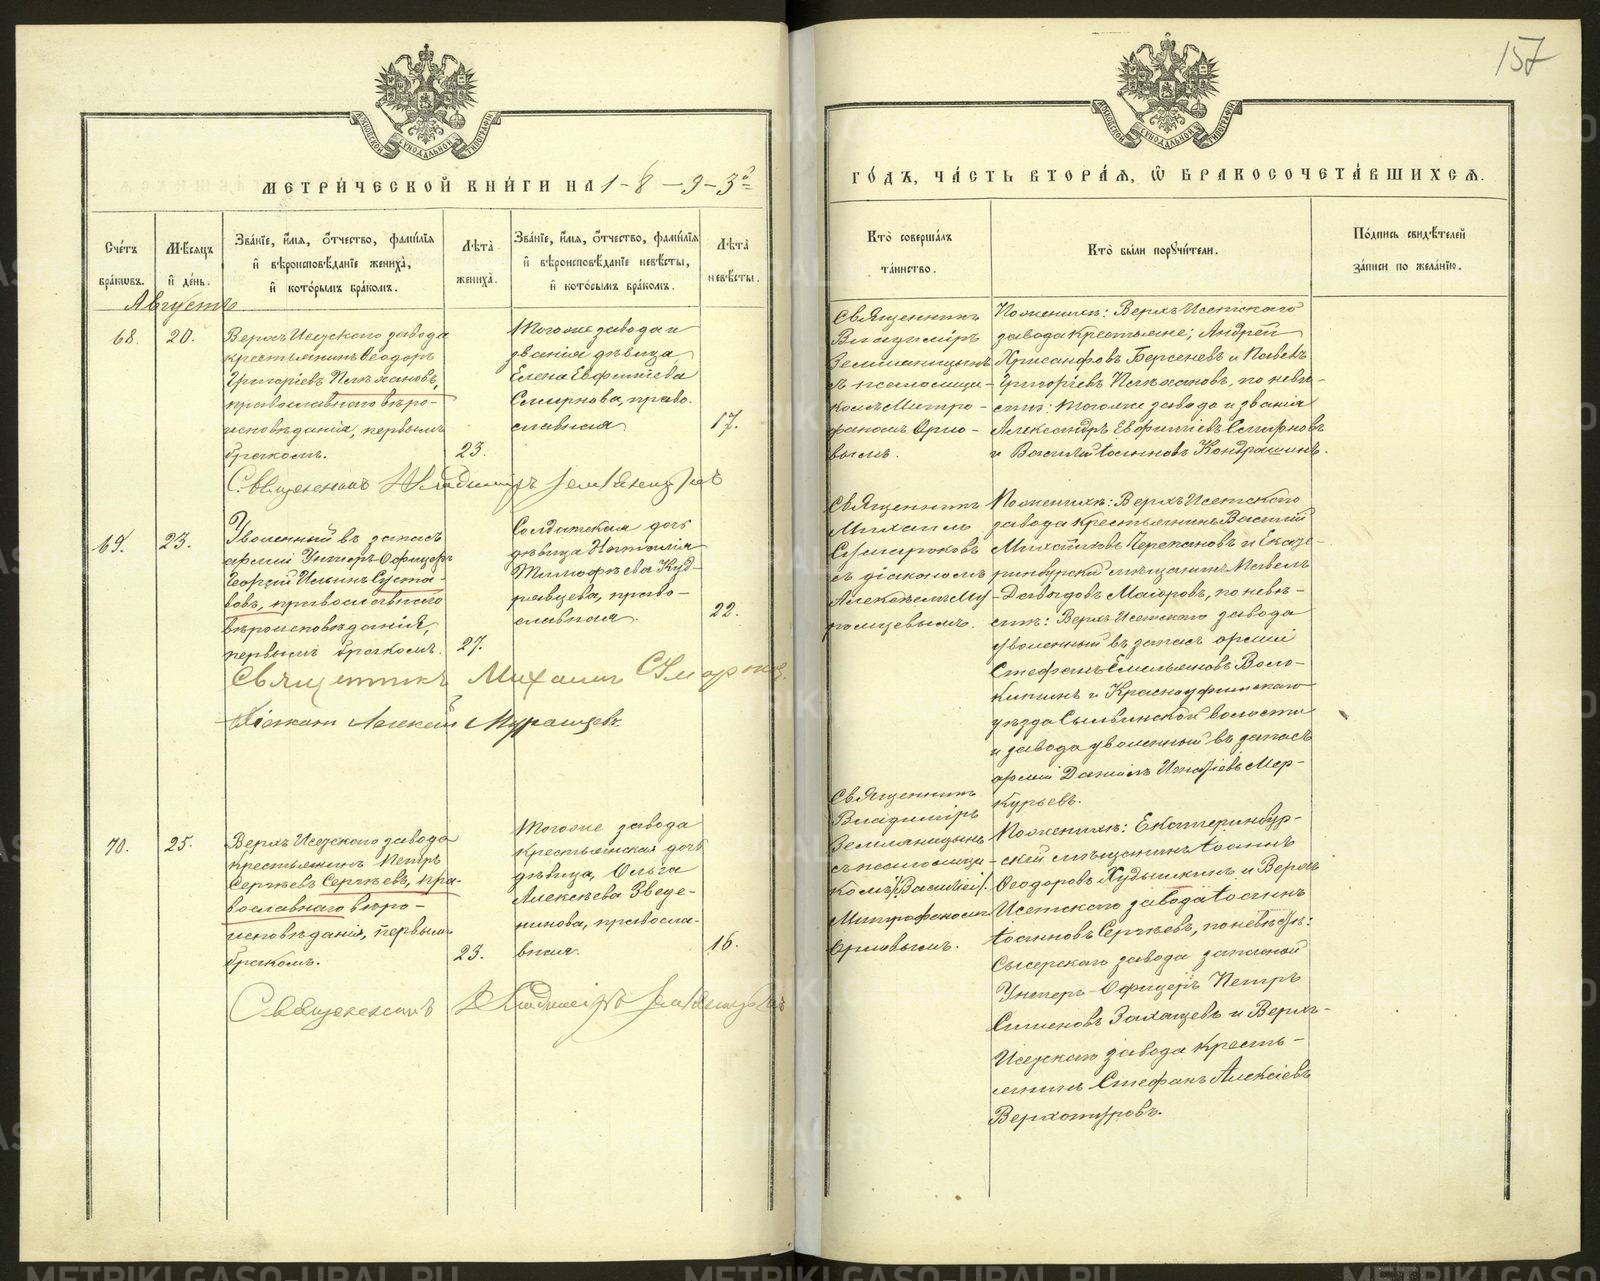 157
МЕТРИ́ЧЕСКОЙ КНИ́ГИ НА 1-8-9-3й
ГО́ДЪ, ЧА́СТЬ ВТОРА́Я, Ѡ БРАКОСОЧЕТА́ВШИХСЯ.
Сче́тъ бра́кѡвъ.
Мѣ́сяцъ и҆ де́нь.
Зва́нїе, и҆́мя, ѻ҆́тчество, фами́лїя
и҆ вѣроисповѣ́данїе жениха̀,
и҆ кото́рымъ бра́комъ.
Лѣ́та жениха̀.
Зва́нїе, и҆́мя, ѻ҆́тчество, фами́лїя
и҆ вѣроисповѣ́данїе невѣ́сты,
и҆ кото́рымъ бра́комъ.
Лѣ́та невѣ́сты.
Кто̀ соверша́лъ
та́инство.
Кто̀ бы́ли порꙋчи́тели.
По́дпись свидѣ́телей
за́писи по жела́нїю.
Августъ
68.
20.
Верхъ Исетского завода
крестьянинъ Ѳеодоръ
Григоріевъ Плѣхановъ,
православнаго вѣро-
исповѣданія, первымъ
бракомъ.
23.
Тогоже завода и
званія дѣвица
Елена Евфиміева
Смирнова, право-
славная
17.
Священникъ
Владиміръ
Земляницынъ
съ псаломщи-
комъ Митро-
фаномъ Орло-
вымъ.
По женихѣ: Верхъ Исетского
завода крестьяне; Андрей
Хрисанфовъ Берсеневъ и Павелъ
Григоріевъ Плѣхановъ, по невѣ-
стѣ: тогоже завода и званія
Александръ Евфиміевъ Смирновъ
и Василій Іоанновъ Кондрашинъ.
Священникъ Владиміръ Земляницынъ
69.
23.
Уволенный въ запасъ
арміи Унтеръ-Офицеръ
Георгій Ильинъ Суста-
вовъ, православнаго
вѣроисповѣданія,
первымъ бракомъ.
27.
Солдатская дочь
дѣвица Наталія
Тимофѣева Куд-
рявцева, право-
славная.
22.
Священникъ
Михаилъ
Сумароковъ
съ діакономъ
Алексѣемъ Му-
ромцевымъ.
По женихѣ: Верхъ Исетского
завода крестьянинъ Василій
Михайловъ Черепановъ и Екате-
ринбургскій мѣщанинъ Павелъ
Давыдовъ Маіоровъ, по невѣ-
стѣ: Верхъ Исетского завода
уволенный въ запасъ арміи
Стефанъ Емельяновъ Воло-
китинъ и Красноуфимскаго
уѣзда Сылвинской волости
и завода уволенный въ запасъ
арміи Даніилъ Игнатіевъ Мер-
курьевъ.
Священникъ Михаилъ Сумароковъ
Діаконъ Алексій Муромцевъ.
70.
25.
Верхъ Исетского завода
крестьянинъ Петръ
Сергѣевъ Сергѣевъ, пра-
вославнаго вѣро-
исповѣданія, первымъ
бракомъ.
23.
Тогоже завода
крестьянская дочь
дѣвица, Ольга
Алексѣева Зведе-
нинова, правосла-
вная.
16.
Священникъ
Владиміръ
Земляницынъ
съ псаломщи-
комъ /Василій/.
Митрофаномъ
Орловымъ.
По женихѣ: Екатеринбур-
скій мѣщанинъ Іоаннъ
Ѳеодоровъ Худышкинъ и Верхъ
Исетского завода Іоаннъ
Іоанновъ Сергѣевъ, по невѣстѣ:
Сысерского завода запасной
Унтеръ-Офицеръ Петръ
Сименовъ Захацевъ и Верхъ-
Исетского завода кресть-
янинъ Стефанъ Алексіевъ
Верхотуровъ.
Священникъ Владиміръ Земляницынъ